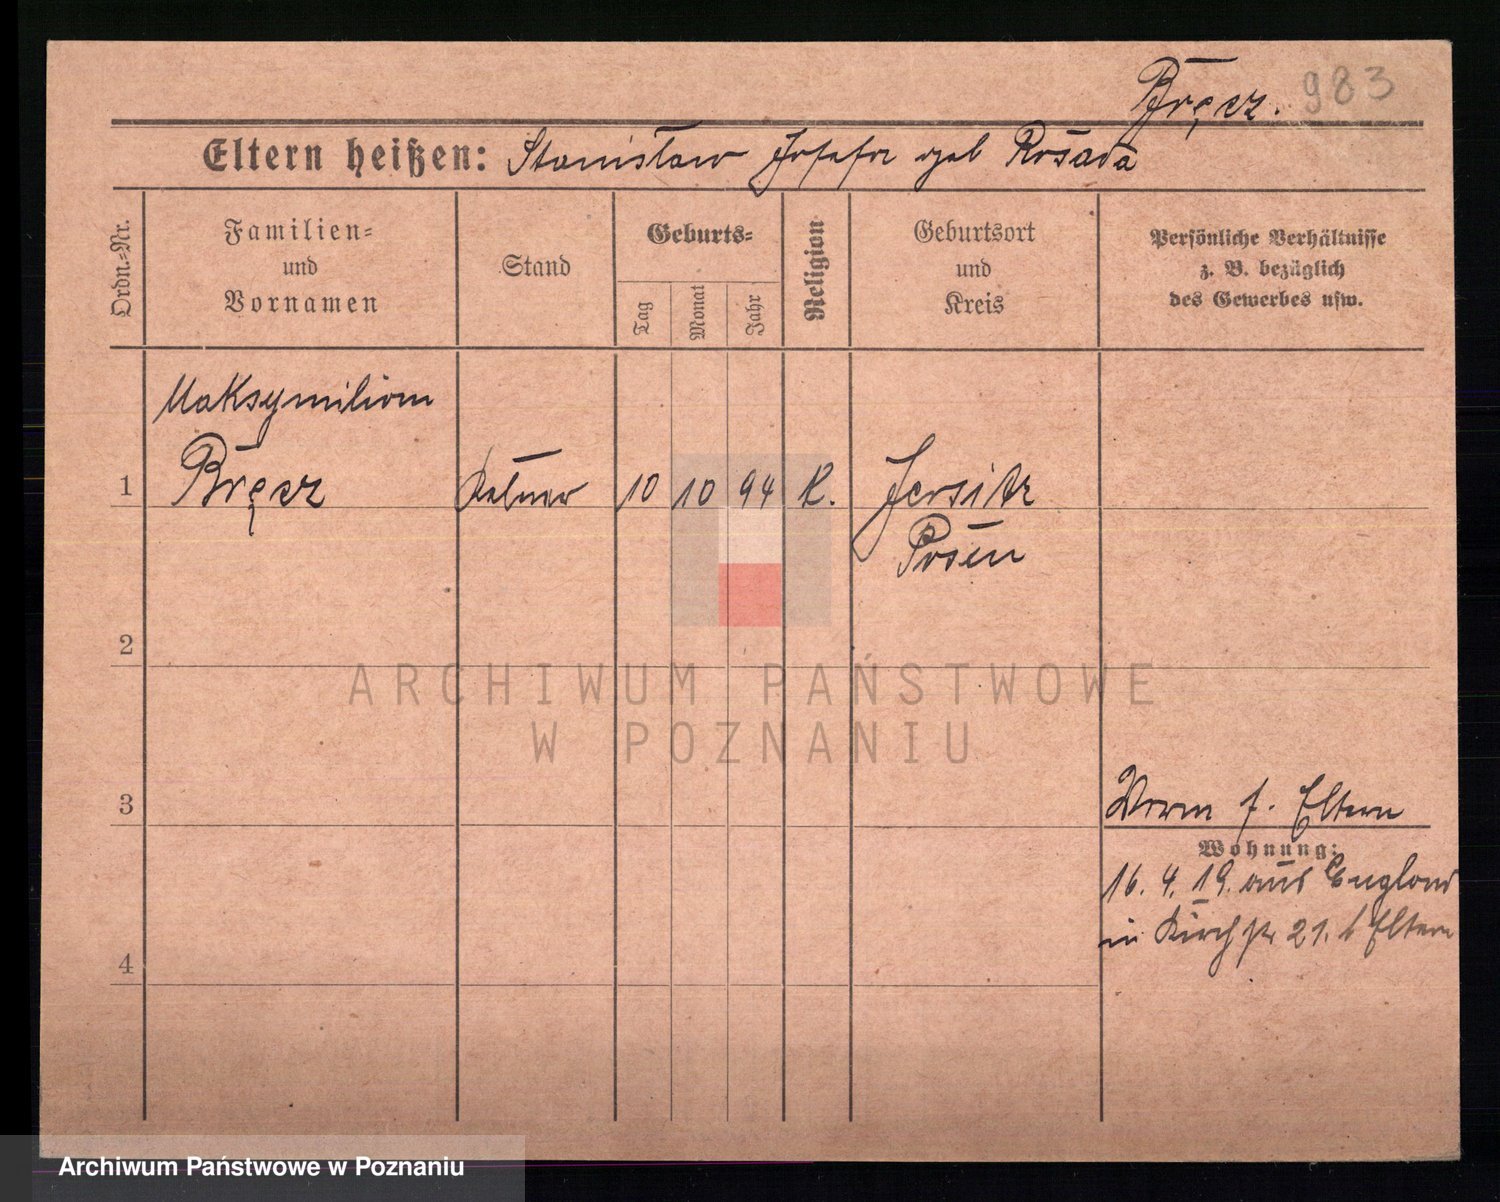 Bręcz. 983
Eltern heißen: Stanisław Josefa geb Rosada
Ordn.-Nr.
Familien-
und
Vornamen
Stand
Geburts-
Tag
Monat
Jahr
Religion
Geburtsort
und
Kreis
Persönliche Verhältnisse
z. B. bezüglich
des Gewerbes usw.
Maksymilian
1 Bręcz Kelner 10 10 94 K. Jersitz
Posen
2
3
Eltern
Wohnung:
16. 4. 19. aus England
in Kirchstr 21. b Eltern
4
ARCHIWUM PAŃSTWOWE
W POZNANIU
Archiwum Państwowe w Poznaniu